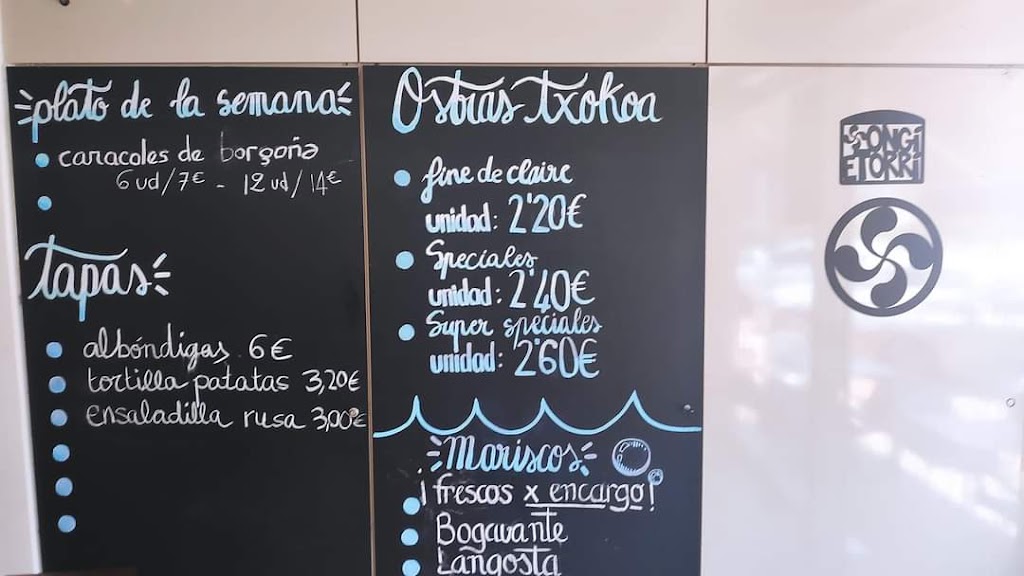 plato de la semana
caracoles de borgoña
6 ud/7€ - 12 ud/14€
tapas
albóndigas 6€
tortilla patatas 3,20€
ensaladilla rusa 3,00€
Ostras Txokoa
fine de claire
unidad: 2'20€
Speciales
unidad: 2'40€
Super spéciales
unidad: 2'60€
Mariscos
¡frescos x encargo!
Bogavante
Langosta
ONGI
ETORRI